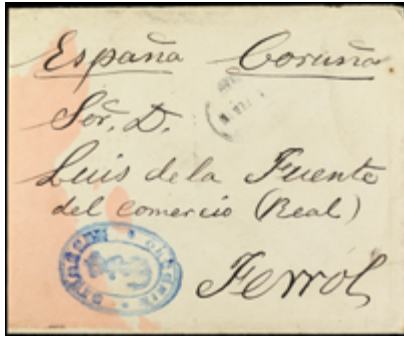 España Coruña
Sor. D.
Luis de la Fuente
del comercio (Real)
Ferrol